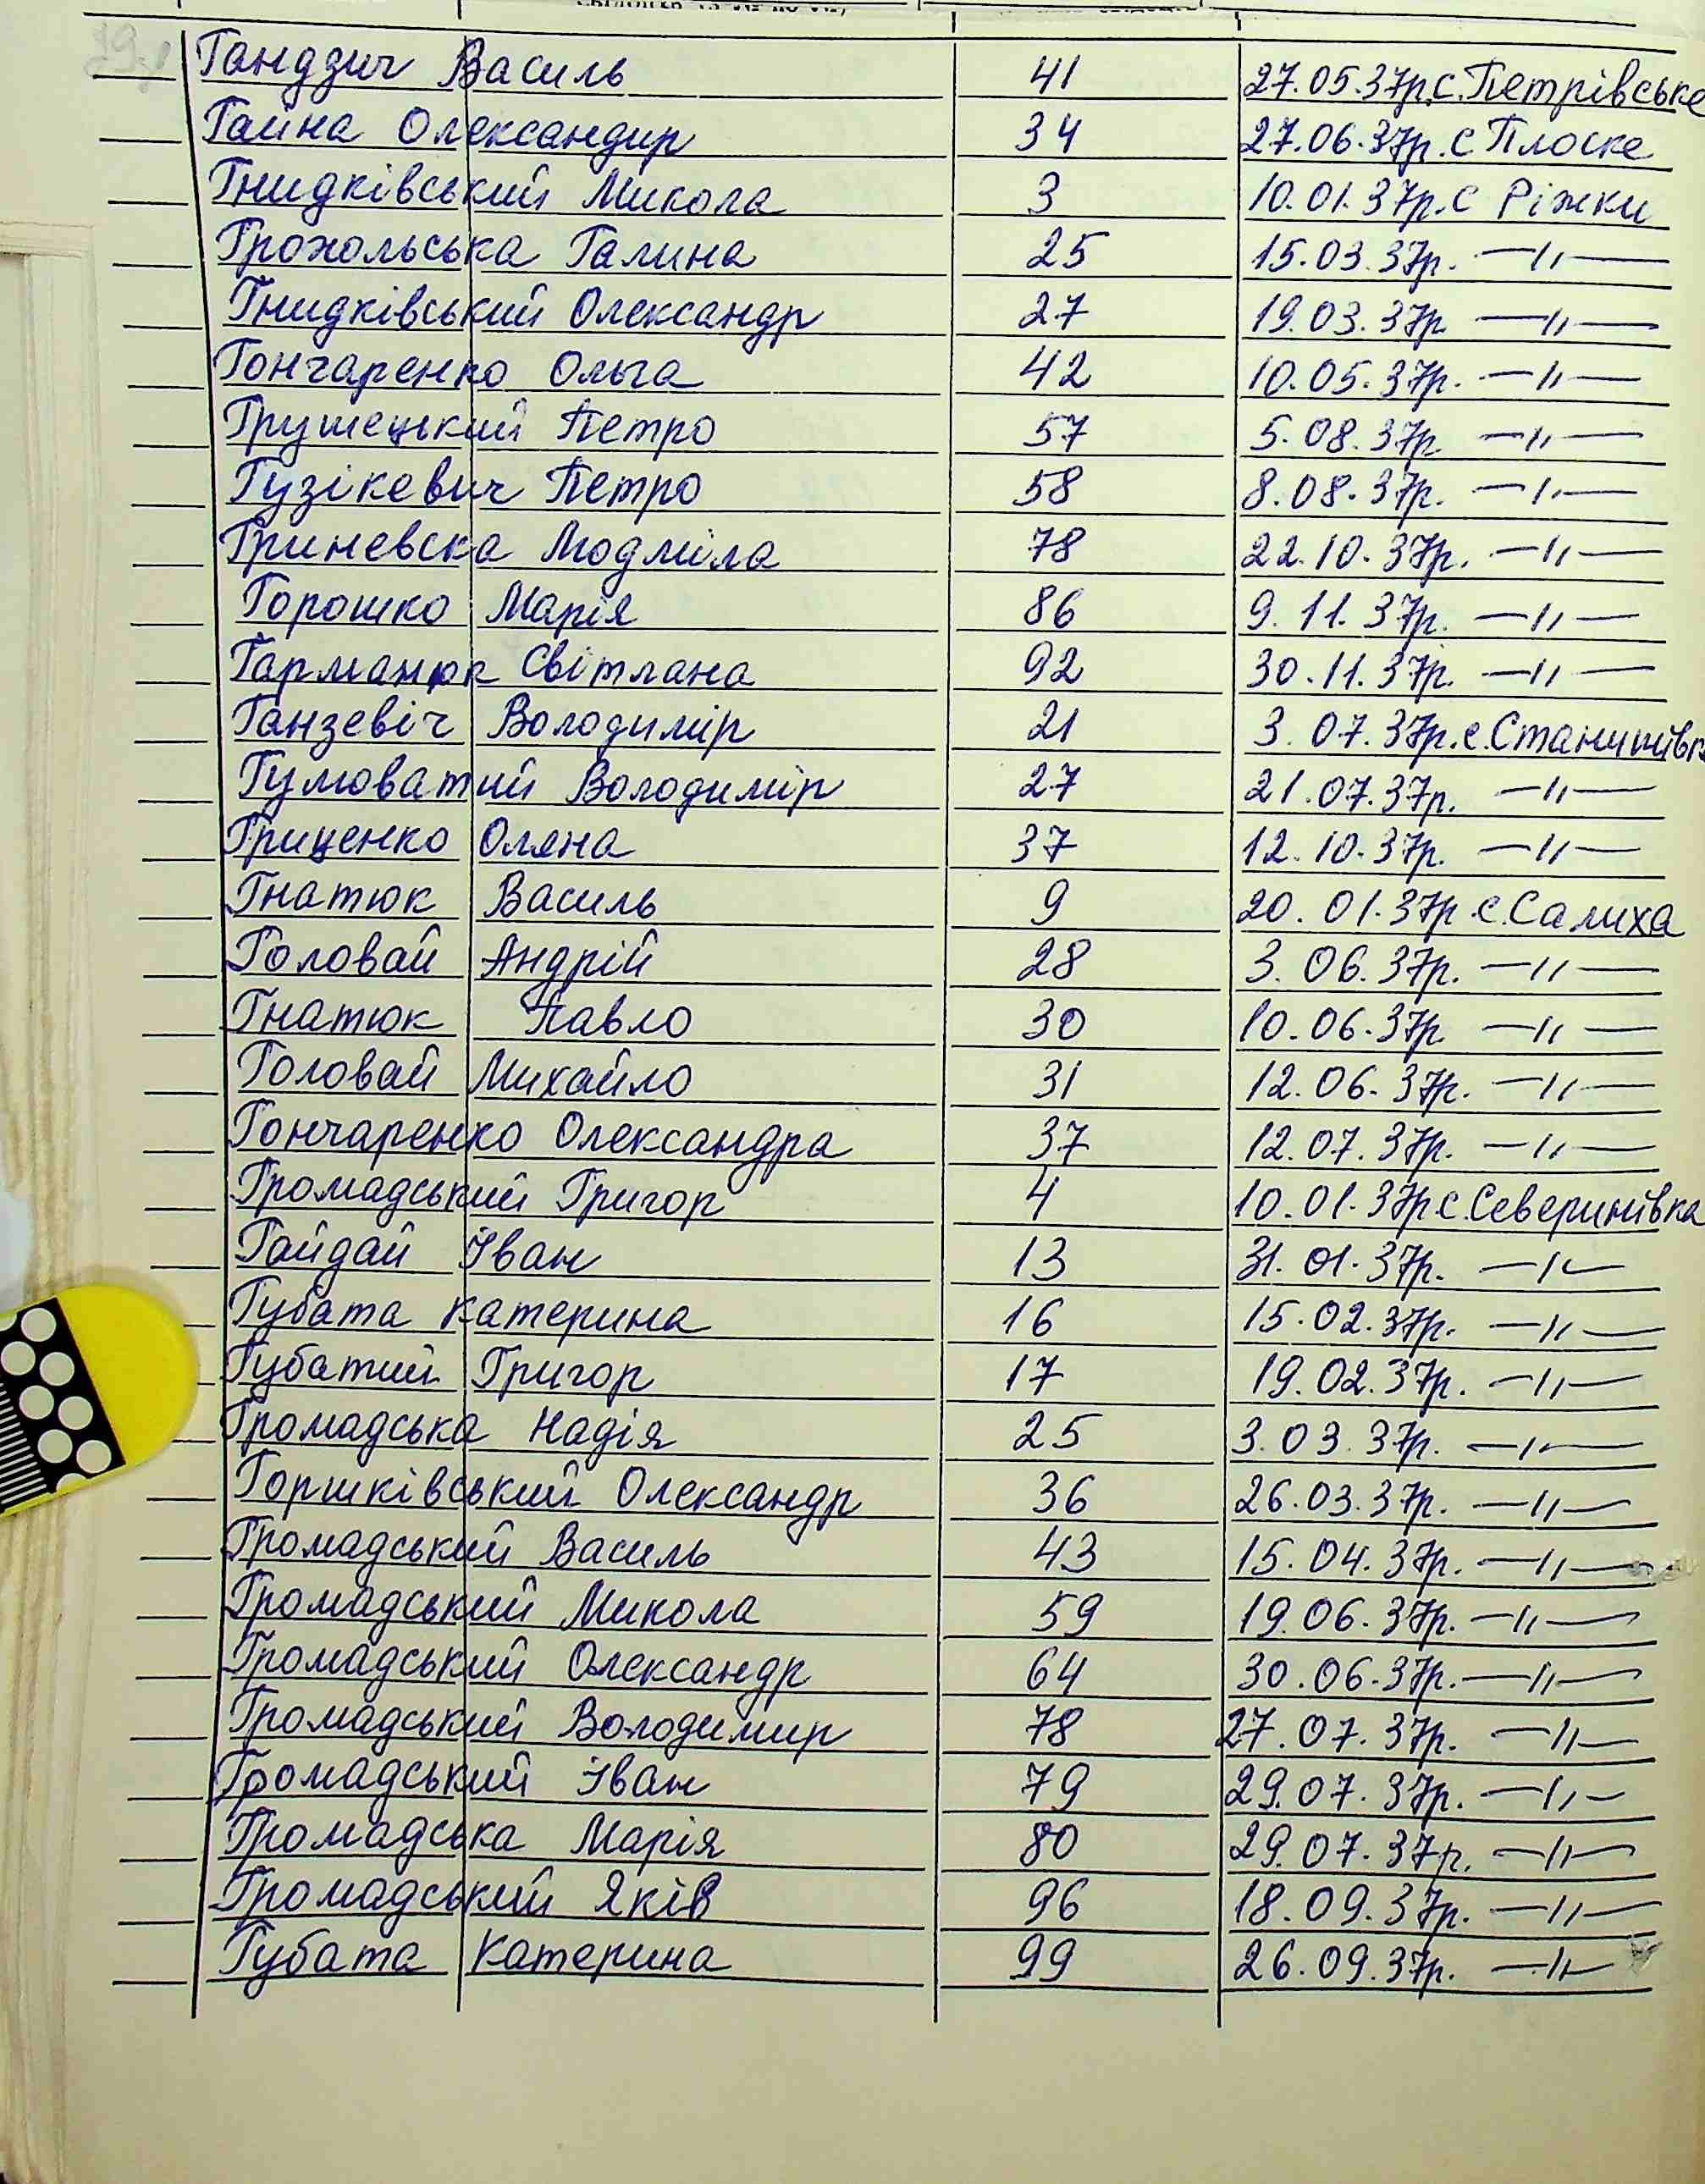 Гандзич Василь 41 27.05.37р. с. Петрівське
Гайна Олександир 34 27.06.37р. с Плоске
Гнидківський Микола 3 10.01.37р. с Ріжки
Грохольська Галина 25 15.03.37р. —"—
Гнидківський Олександр 27 19.03.37р. —"—
Гончаренко Ольга 42 10.05.37р. —"—
Грушецький Петро 57 5.08.37р. —"—
Гузікевич Петро 58 8.08.37р. —"—
Гриневска Людміла 78 22.10.37р. —"—
Горошко Марія 86 9.11.37р. —"—
Гарманюк Світлана 92 30.11.37р. —"—
Ганзевіч Володимір 21 3.07.37р. с.
Гумоватий Володимір 27 21.07.37р. —"—
Гриценко Оляна 37 12.10.37р. —"—
Гнатюк Василь 9 20.01.37р. с. Салиха
Головай Андрій 28 3.06.37р. —"—
Гнатюк Павло 30 10.06.37р. —"—
Головай Михайло 31 12.06.37р. —"—
Гончаренко Олександра 37 12.07.37р. —"—
Громадський Григор 4 10.01.37р с. Северинівка
Гайдай Іван 13 31.01.37р. —"—
Губата Катерина 16 15.02.37р. —"—
Губатий Григор 17 19.02.37р. —"—
Громадська Надія 25 3.03.37р. —"—
Горшківський Олександр 36 26.03.37р. —"—
Громадський Василь 43 15.04.37р. —"—
Громадський Микола 59 19.06.37р. —"—
Громадський Олександр 64 30.06.37р. —"—
Громадський Володимир 78 27.07.37р. —"—
Громадський Іван 79 29.07.37р. —"—
Громадська Марія 80 29.07.37р. —"—
Громадський Яків 96 18.09.37р. —"—
Губата Катерина 99 26.09.37р. —"—